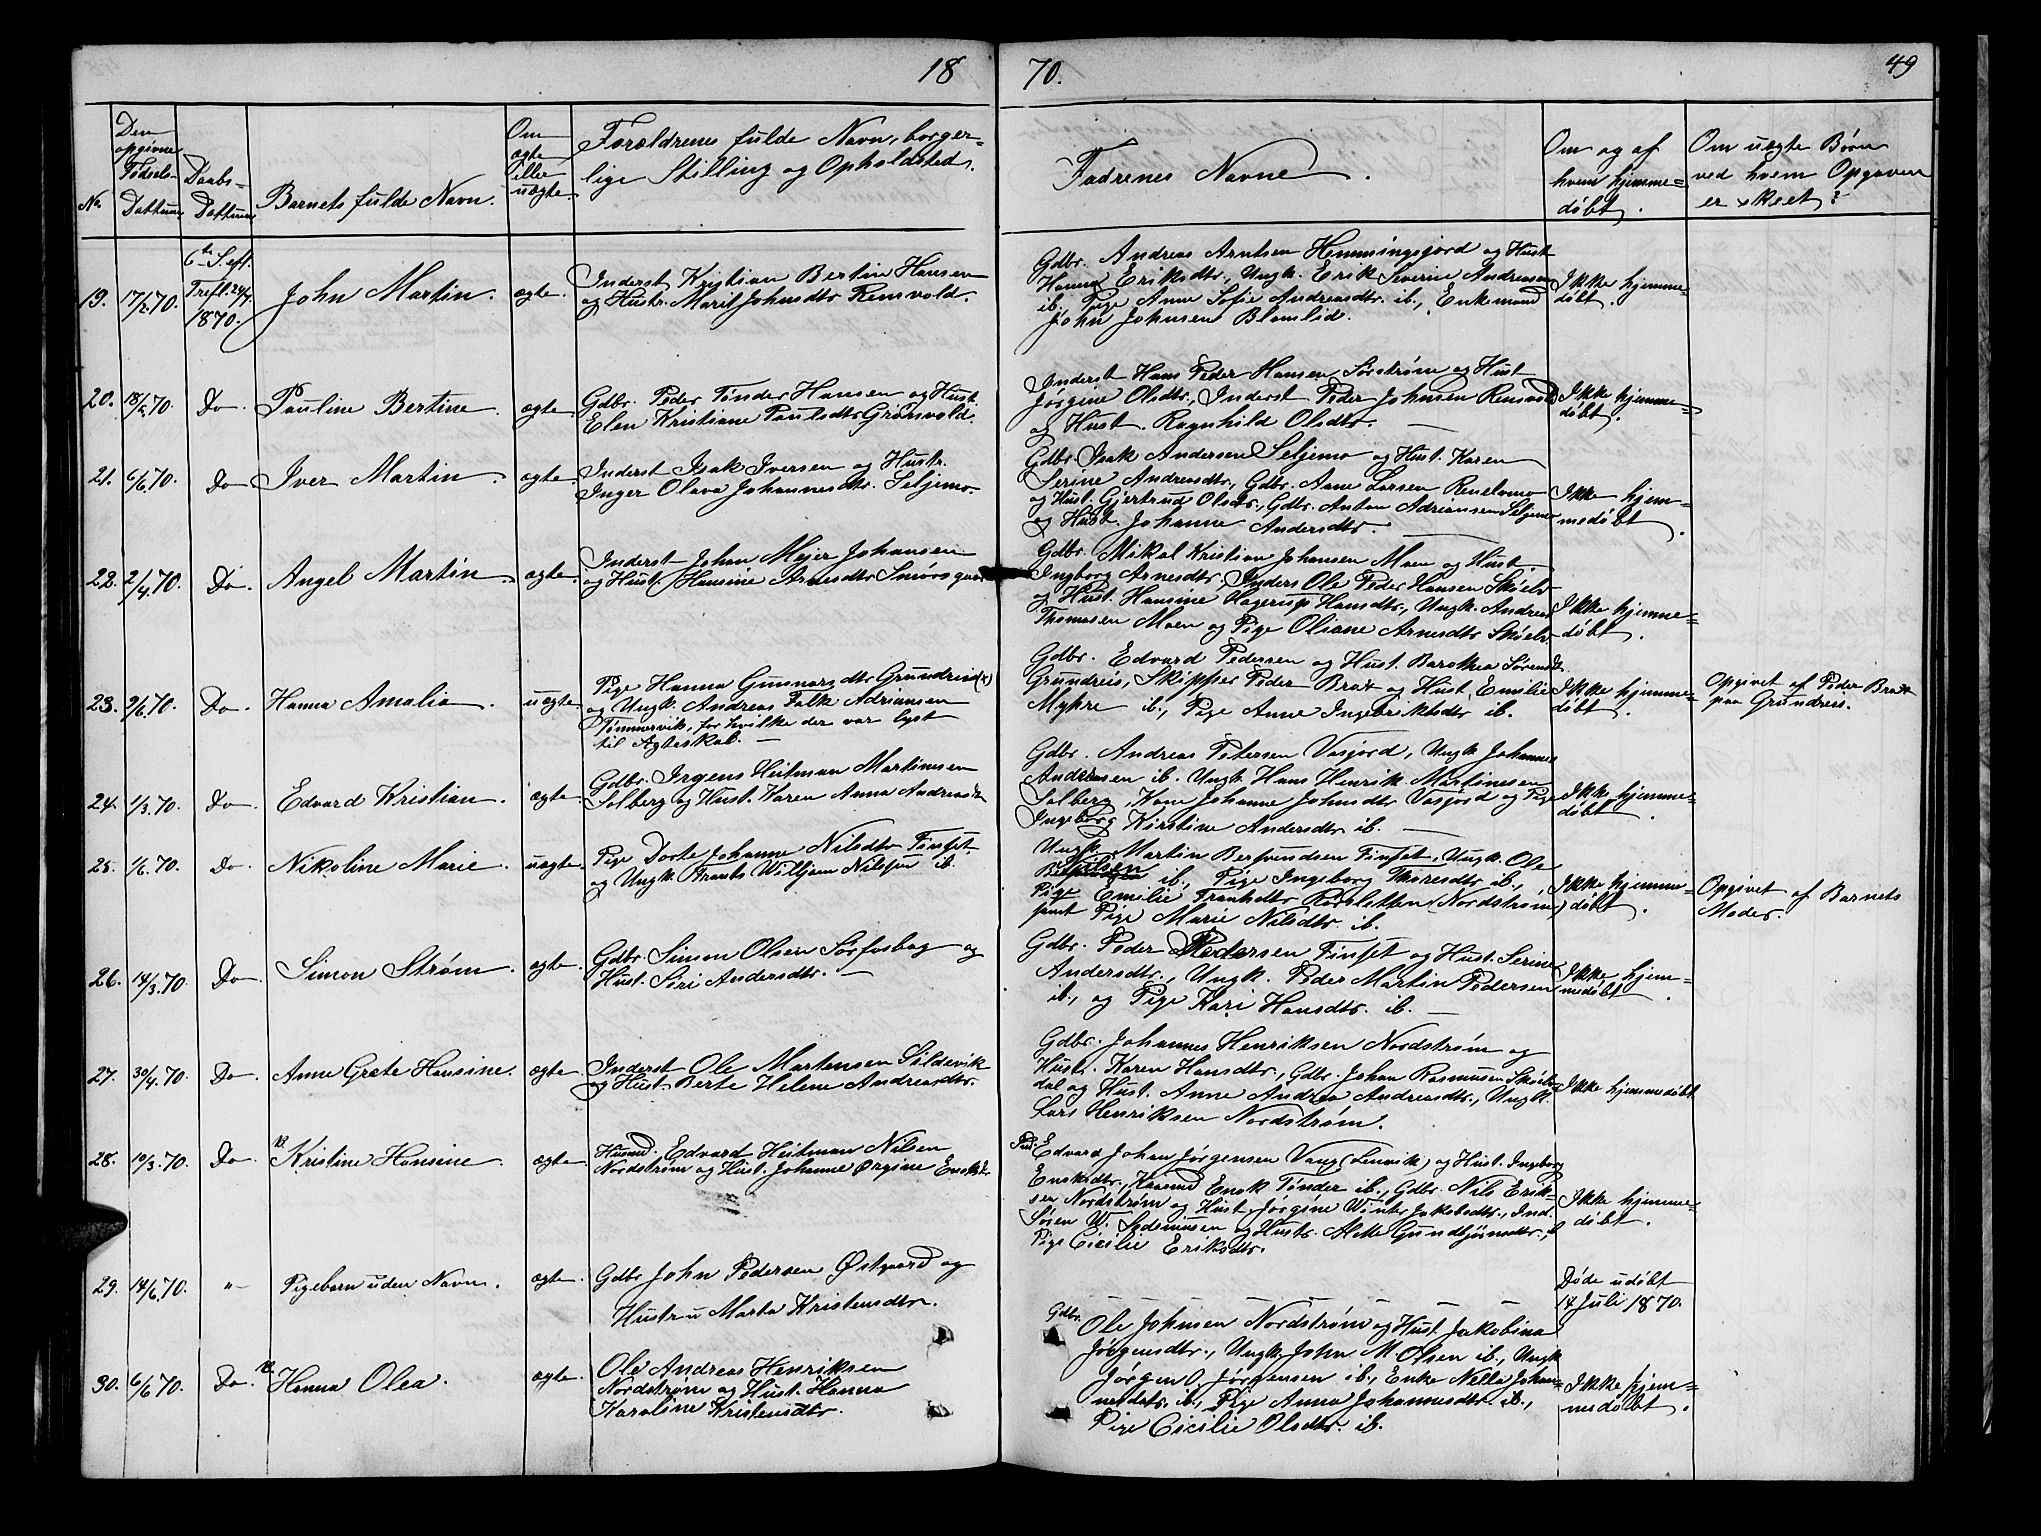 18 70. 49
No.
Den opgivne Fødsels- Dattum
Daabs- Dattum
Barnets fulde Navn.
Om ægte eller uægte.
Forældrenes fulde Navn, borger-
lige Stilling og Opholdsted.
Faderenes Navne.
Om og af
hvem hjemme=
døbt.
Om uægte Børn
ved hvem Opgaven
er skeet?
19. 17/2.70. 6te S. eft. Tref. 24/7. 1870. John Martin. ægte.
Inderst Kristian Bertin Hansen
og Hustr. Marit Johnsdtr Rensvold.
Gdbr. Andreas Arntsen Hemmingsjord og Hust
Hanna Eriksdtr, Ungk. Erik Severin Andreasen
ib. Pige Anne Sofie Andreasdtr. ib., Enkemand
John Johnsen Blomlid.
Ikke hjemme=
døbt.
20. 18/5.70. Do. Pauline Bertine. ægte.
Gdbr. Peder Tønder Hansen og Hust.
Elen Kristiane Paulsdtr Grønvold.
Inderst Hans Peder Hansen Sørstrøm og Hust
Jørgine Olsdtr, Inderst Peder Johnsen Rensvold
og Hust. Ragnhild Olsdtr.
Ikke hjemme=
døbt.
21. 6/6.70. Do Iver Martin. ægte.
Inderst Isak Iversen og Hustr.
Inger Olava Johannesdtr. Seljemo.
Gdbr. Isak Andersen Seljemo og Hust. Karen
Serine Andreasdtr, Gdbr. Arne Larsen Renelvmo
og Hust. Gjertrud Olsdtr, Gdbr. Anton Adriansen Seljemo
og Hust. Johanne Andersdtr.
Ikke hjem=
medøbt.
22. 2/4.70. Do. Angel Martin. ægte.
Inderst Johan Mejer Johansen
og Hust. Hansine Arnesdtr Smørsgaard
Gdbr. Mikal Kristian Johansen Moen og Hust.
Ingborg Arnesdtr, Inders Ole Peder Hansen Skøelv
og Hust. Hansine Hagerup Hansdtr., Ungk. Andreas
Thomasen Moen og Pige Oliane Arnesdtr Skøelv
Ikke hjemme=
døbt.
23. 9/6.70. Do. Hanna Amalia. uægte.
Pige Hanna Gunnarsdtr Grundreis(x)
og Ungk. Andreas Falk Adriansen
Tømmervik, for hvilke der var lyst
til Ægteskab.
Gdbr. Edvard Pedersen og Hust. Barokea Sørensdtr
Grundreis, Skipper Peder Brox og Hust. Emilie
Myhre ib., Pige Anne Ingebrikbdtr ib.
Ikke hjemme=
døbt.
Opgivet af Peder Brox
paa Grundreis.
24. 1/3.70. Do. Edvard Kristian. ægte.
Gdbr. Irgens Heitman Martinusen
Solberg og Hust. Karen Anna Andreasdtr
Gdbr. Andreas Petersen Vasjord, Ungk Johannes
Andersen ib. Ungk Hans Henrik Martinusen
Solberg, Kone Johanne Johnsdtr Vasjord og Pige
Ingeborg Kirstine Andersdtr. ib.
Ikke hjemme=
døbt.
25. 1/6.70. Do. Nikoline Marie. uægte.
Pige Dorte Johanne Nilsdtr Finset
og Ungk Frants Willjam Nilssen ib.
Ungk. Martin Bersvendsen Finset, Ungk. Ole
Nilsen ib., Pige Ingeborg Thoresdtr ib.,
Pige Emilie Frantsdtr Rosslette (Nordstrøm)
samt Pige Marie Nilsdtr. ib.
Ikke hjemme=
døbt.
Opgivet af Barnets
Moder.
26. 14/3.70 Do. Simon Strøm. ægte.
Gdbr. Simon Olsen Sørfosbog og
Hust. Siri Andersdtr.
Gdbr. Peder Pedersen Finset og Hust. Serine
Andersdtr., Ungk. Peder Martin Pedersen
ib., og Pige Kari Hansdtr. ib.
Ikke hjem=
medøbt.
27. 30/4.70. Do. Anne Grete Hansine. ægte.
Inderst Ole Martensen Sildevik
og Hust Berte Helene Andreasdtr.
Gdbr. Johannes Henriksen Nordstrøm og
Hust. Karen Hansdtr., Gdbr. Johan Rasmusen Skøelv=
dal og Hust. Anne Andrea Andreasdtr., Ungk.
Lars Henriksen Nordstrøm.
Ikke hjemmedøbt
28. 10/3.70. Do. Kristine Hansine. ægte.
Husmd. Edvard Heitman Nilsen
Nordstrøm og Hust. Johanne Ørgine Enoksdtr.
Edvard Johan Jørgensen Vang (Lenvik) og Hust. Ingeborg
Enoksdtr., Kaarmd Enok Tønder ib., Gdbr. Nils Erik-
sen Nordstrøm og Hust. Jørgine Winter Jakobsdtr., Ind.
Søren W. Sydeniusen og Hustr. Mette Gundbjørnsdtr., og
Pige Cicilie Eriksdtr.
Ikke hjemme=
døbt.
29. 14/6.70. " Pigebarn uden Navn. ægte.
Gdbr John Pedersen Østgaard og
Hustru Marta Kristensdtr.
Døde udøbt
14 Juli 1870.
30. 6/6 70. Do. Hanna Olea. ægte.
Ole Andreas Henriksen
Nordstrøm og Hust. Hanna
Karoline Kristensdtr.
Gdbr. Ole Johnsen Nordstrøm og Hust Jakobina
Jørgensdtr., Ungk. John M. Olsen ib., Ungk
Jørgen O. Jørgensen ib., Enke Nella Johan=
nesdatr. ib., Pige Anna Johannesdtr. ib.,
Pige Cicilie Olsdtr. ib.
Ikke hjem=
medøbt.